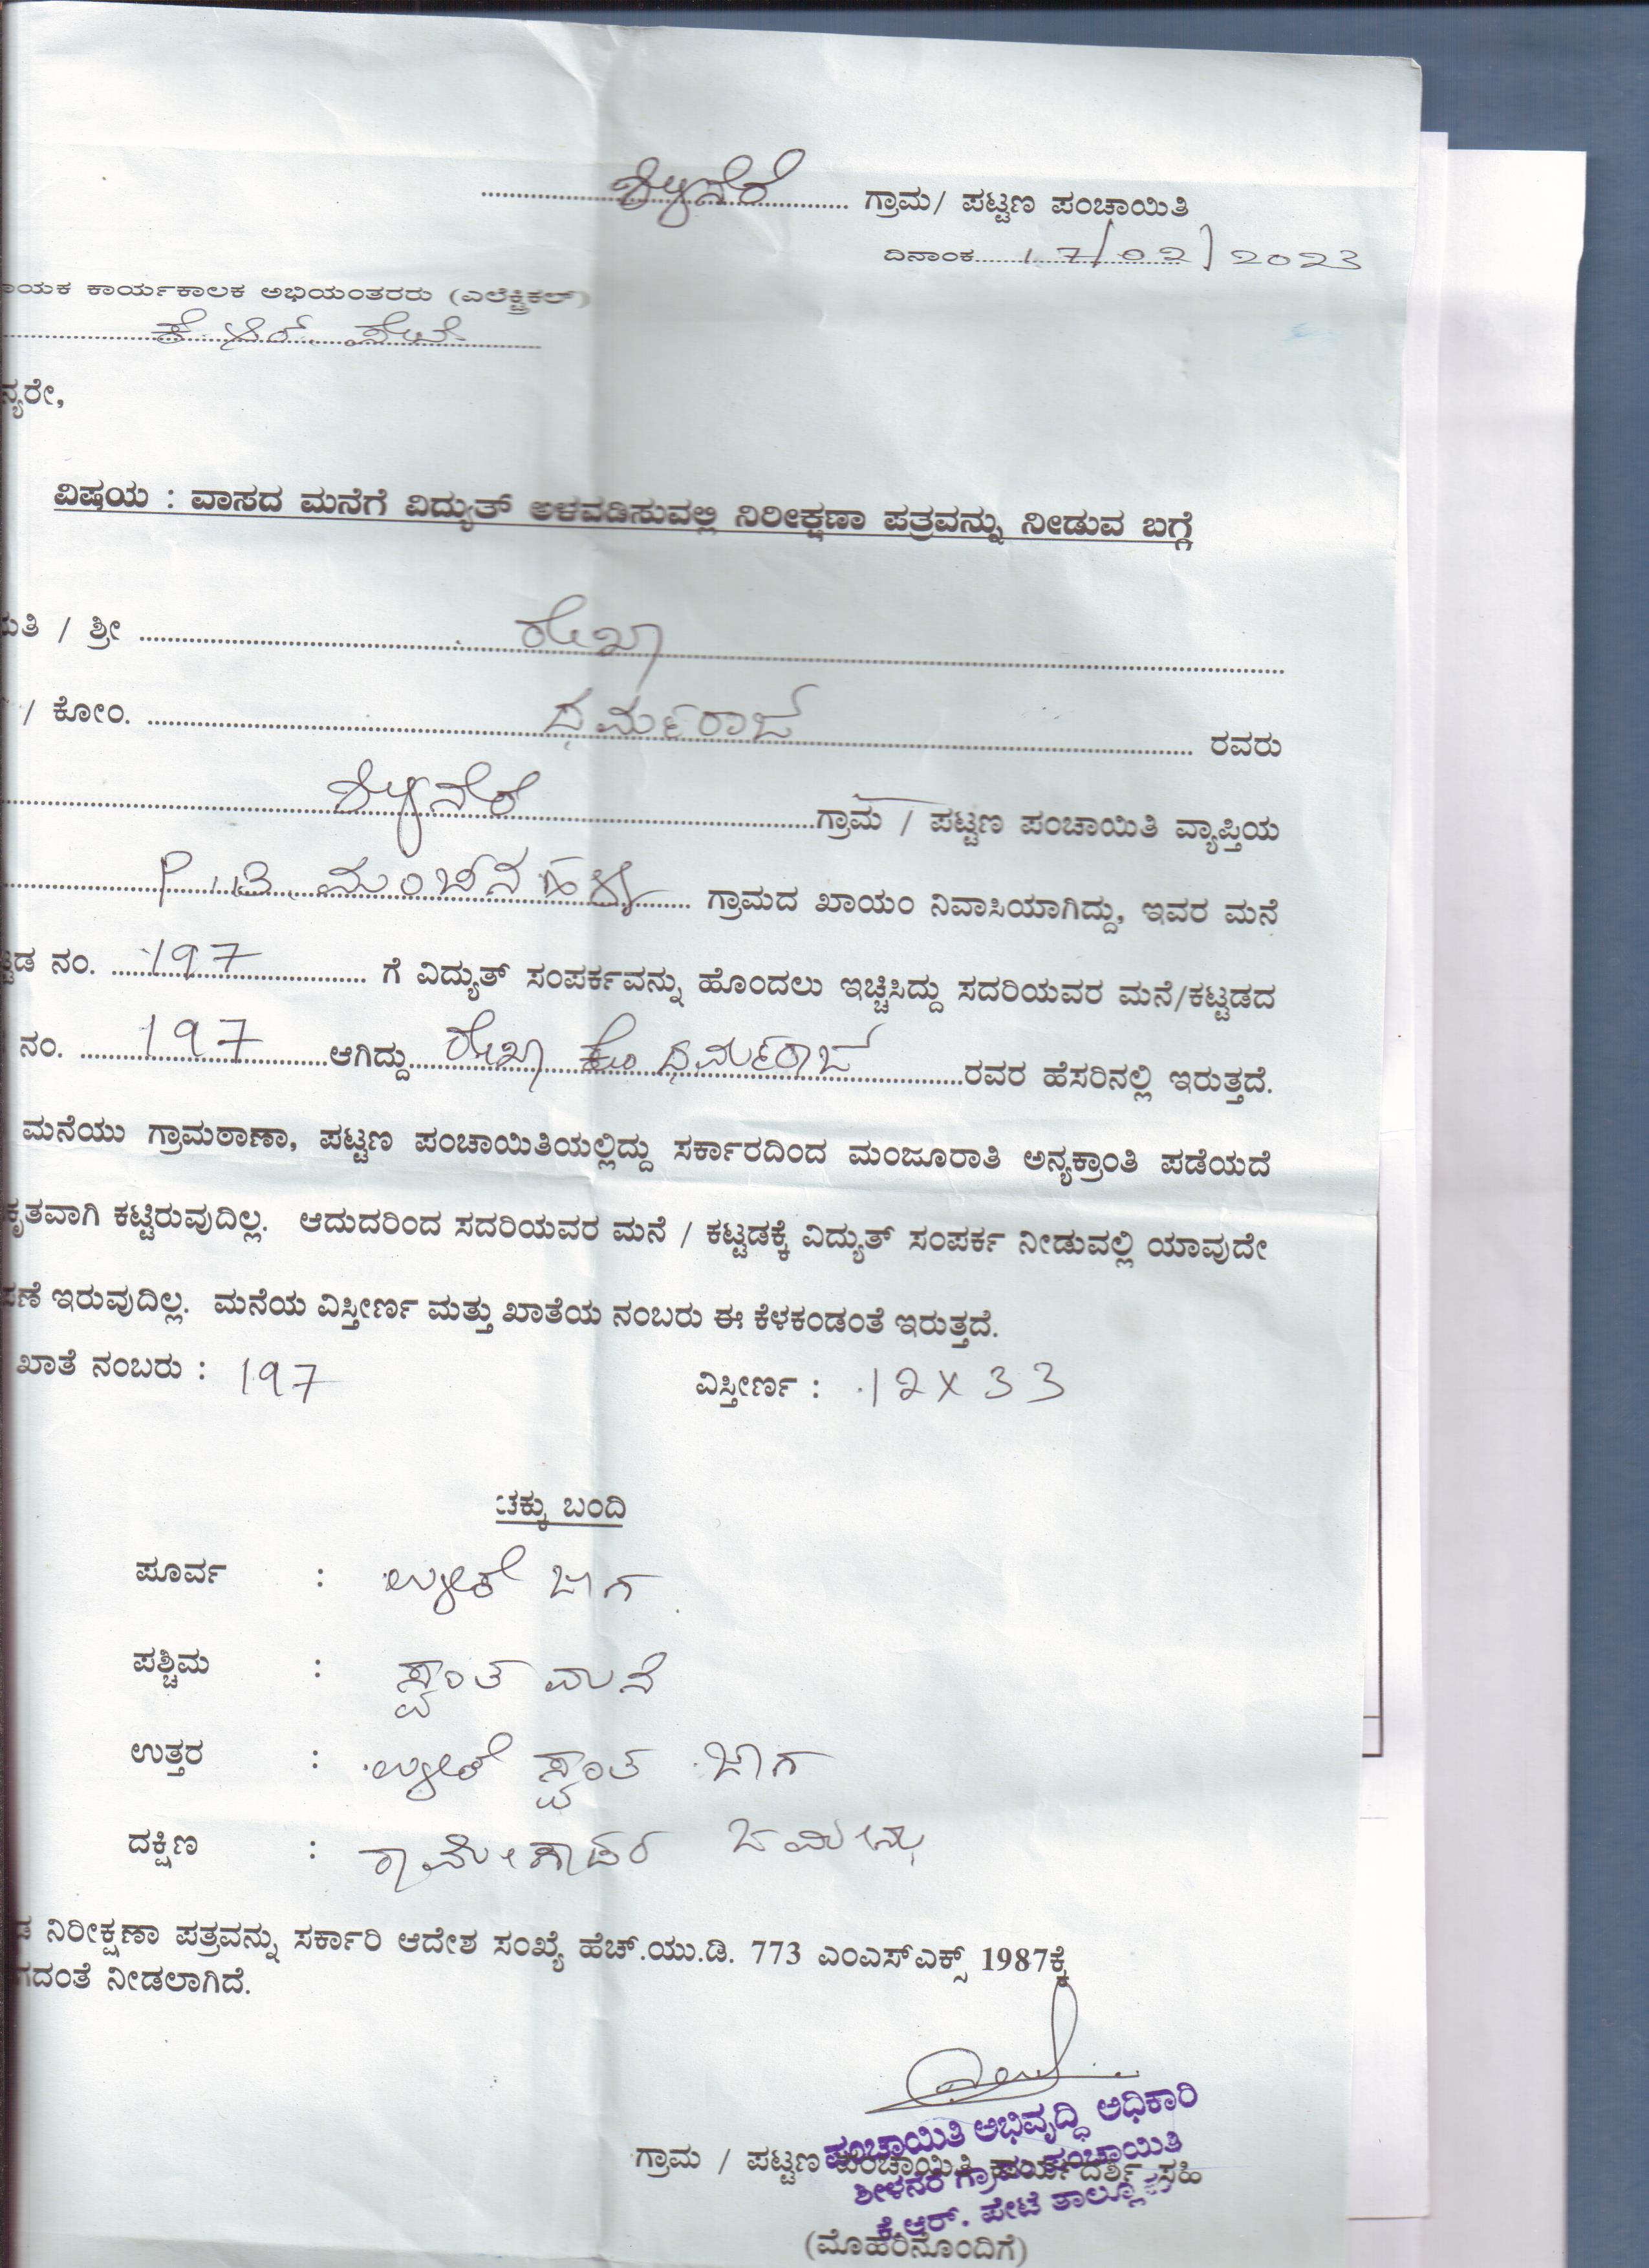 ಶೀಳನೆರೆ ಗ್ರಾಮ/ ಪಟ್ಟಣ ಪಂಚಾಯಿತಿ
ದಿನಾಂಕ 17/02/2023
ಾಯಕ ಕಾರ್ಯಕಾಲಕ ಅಭಿಯಂತರರು (ಎಲೆಕ್ಟ್ರಿಕಲ್)
ಕೆ.ಆರ್. ಪೇಟೆ
ನ್ಯರೇ,
ವಿಷಯ : ವಾಸದ ಮನೆಗೆ ವಿದ್ಯುತ್ ಅಳವಡಿಸುವಲ್ಲಿ ನಿರೀಕ್ಷಣಾ ಪತ್ರವನ್ನು ನೀಡುವ ಬಗ್ಗೆ
ಮತಿ / ಶ್ರೀ ರೇಖಾ
/ ಕೋಂ. ಧರ್ಮರಾಜ ರವರು
ಶೀಳನೆರೆ ಗ್ರಾಮ / ಪಟ್ಟಣ ಪಂಚಾಯಿತಿ ವ್ಯಾಪ್ತಿಯ
ಮಂಚಿನಹಳ್ಳಿ ಗ್ರಾಮದ ಖಾಯಂ ನಿವಾಸಿಯಾಗಿದ್ದು, ಇವರ ಮನೆ
ಟ್ಟಡ ನಂ. 197 ಗೆ ವಿದ್ಯುತ್ ಸಂಪರ್ಕವನ್ನು ಹೊಂದಲು ಇಚ್ಚಿಸಿದ್ದು ಸದರಿಯವರ ಮನೆ/ಕಟ್ಟಡದ
ನಂ. 197 ಆಗಿದ್ದು ರೇಖಾ ಕೋಂ ಧರ್ಮರಾಜ ರವರ ಹೆಸರಿನಲ್ಲಿ ಇರುತ್ತದೆ.
ಮನೆಯು ಗ್ರಾಮಠಾಣಾ, ಪಟ್ಟಣ ಪಂಚಾಯಿತಿಯಲ್ಲಿದ್ದು ಸರ್ಕಾರದಿಂದ ಮಂಜೂರಾತಿ ಅನ್ಯಕ್ರಾಂತಿ ಪಡೆಯದೆ
ಕೃತವಾಗಿ ಕಟ್ಟಿರುವುದಿಲ್ಲ. ಆದುದರಿಂದ ಸದರಿಯವರ ಮನೆ / ಕಟ್ಟಡಕ್ಕೆ ವಿದ್ಯುತ್ ಸಂಪರ್ಕ ನೀಡುವಲ್ಲಿ ಯಾವುದೇ
ಪಣೆ ಇರುವುದಿಲ್ಲ. ಮನೆಯ ವಿಸ್ತೀರ್ಣ ಮತ್ತು ಖಾತೆಯ ನಂಬರು ಈ ಕೆಳಕಂಡಂತೆ ಇರುತ್ತದೆ.
ಖಾತೆ ನಂಬರು : 197 ವಿಸ್ತೀರ್ಣ : 12 x 33
ಚಕ್ಕು ಬಂದಿ
ಪೂರ್ವ : ಉಳಿಕೆ ಜಾಗ
ಪಶ್ಚಿಮ : ಸ್ವಂತ ಮನೆ
ಉತ್ತರ : ಉಳಿಕೆ ಸ್ವಂತ ಜಾಗ
ದಕ್ಷಿಣ : ರಾಮೇಗೌಡರ ಜಮೀನು
ಡ ನಿರೀಕ್ಷಣಾ ಪತ್ರವನ್ನು ಸರ್ಕಾರಿ ಆದೇಶ ಸಂಖ್ಯೆ ಹೆಚ್.ಯು.ಡಿ. 773 ಎಂಎಸ್ಎಕ್ಸ್ 1987ಕ್ಕೆ
ಗದಂತೆ ನೀಡಲಾಗಿದೆ.
ಪಂಚಾಯಿತಿ ಅಭಿವೃದ್ಧಿ ಅಧಿಕಾರಿ
ಗ್ರಾಮ / ಪಟ್ಟಣ ಪಂಚಾಯಿತಿ ಕಾರ್ಯದರ್ಶಿ ಸಹಿ
ಶೀಳನೆರೆ ಗ್ರಾಮ ಪಂಚಾಯಿತಿ
ಕೆ.ಆರ್. ಪೇಟೆ ತಾಲ್ಲೂಕು
(ಮೊಹರಿನೊಂದಿಗೆ)